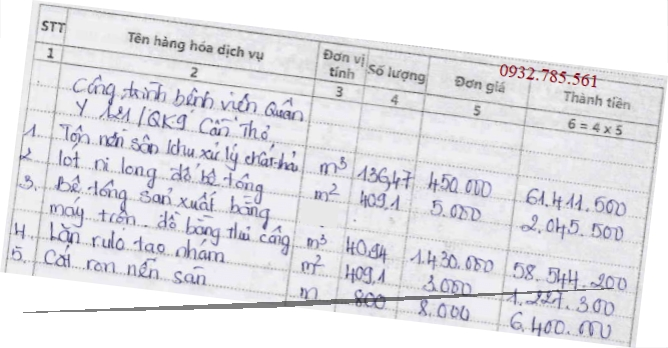 0932.785.561
STT Tên hàng hóa dịch vụ Đơn vị tính Số lượng Đơn giá Thành tiền
1 2 3 4 5 6 = 4 x 5
Công trình bệnh viện Quân
Y 121/QK9 Cần Thơ
1. Tôn nền sân khu xử lý chất thải m³ 136,47 450.000 61.411.500
2. lót ni lông đổ bê tông m² 409,1 5.000 2.045.500
3. Bê tông sản xuất bằng
máy trộn đổ bằng thủ công m³ 40,94 1.430.000 58.544.200
4. Lăn rulo tạo nhám m² 409,1 3.000 1.227.300
5. Cắt ron nền sân m 800 8.000 6.400.000